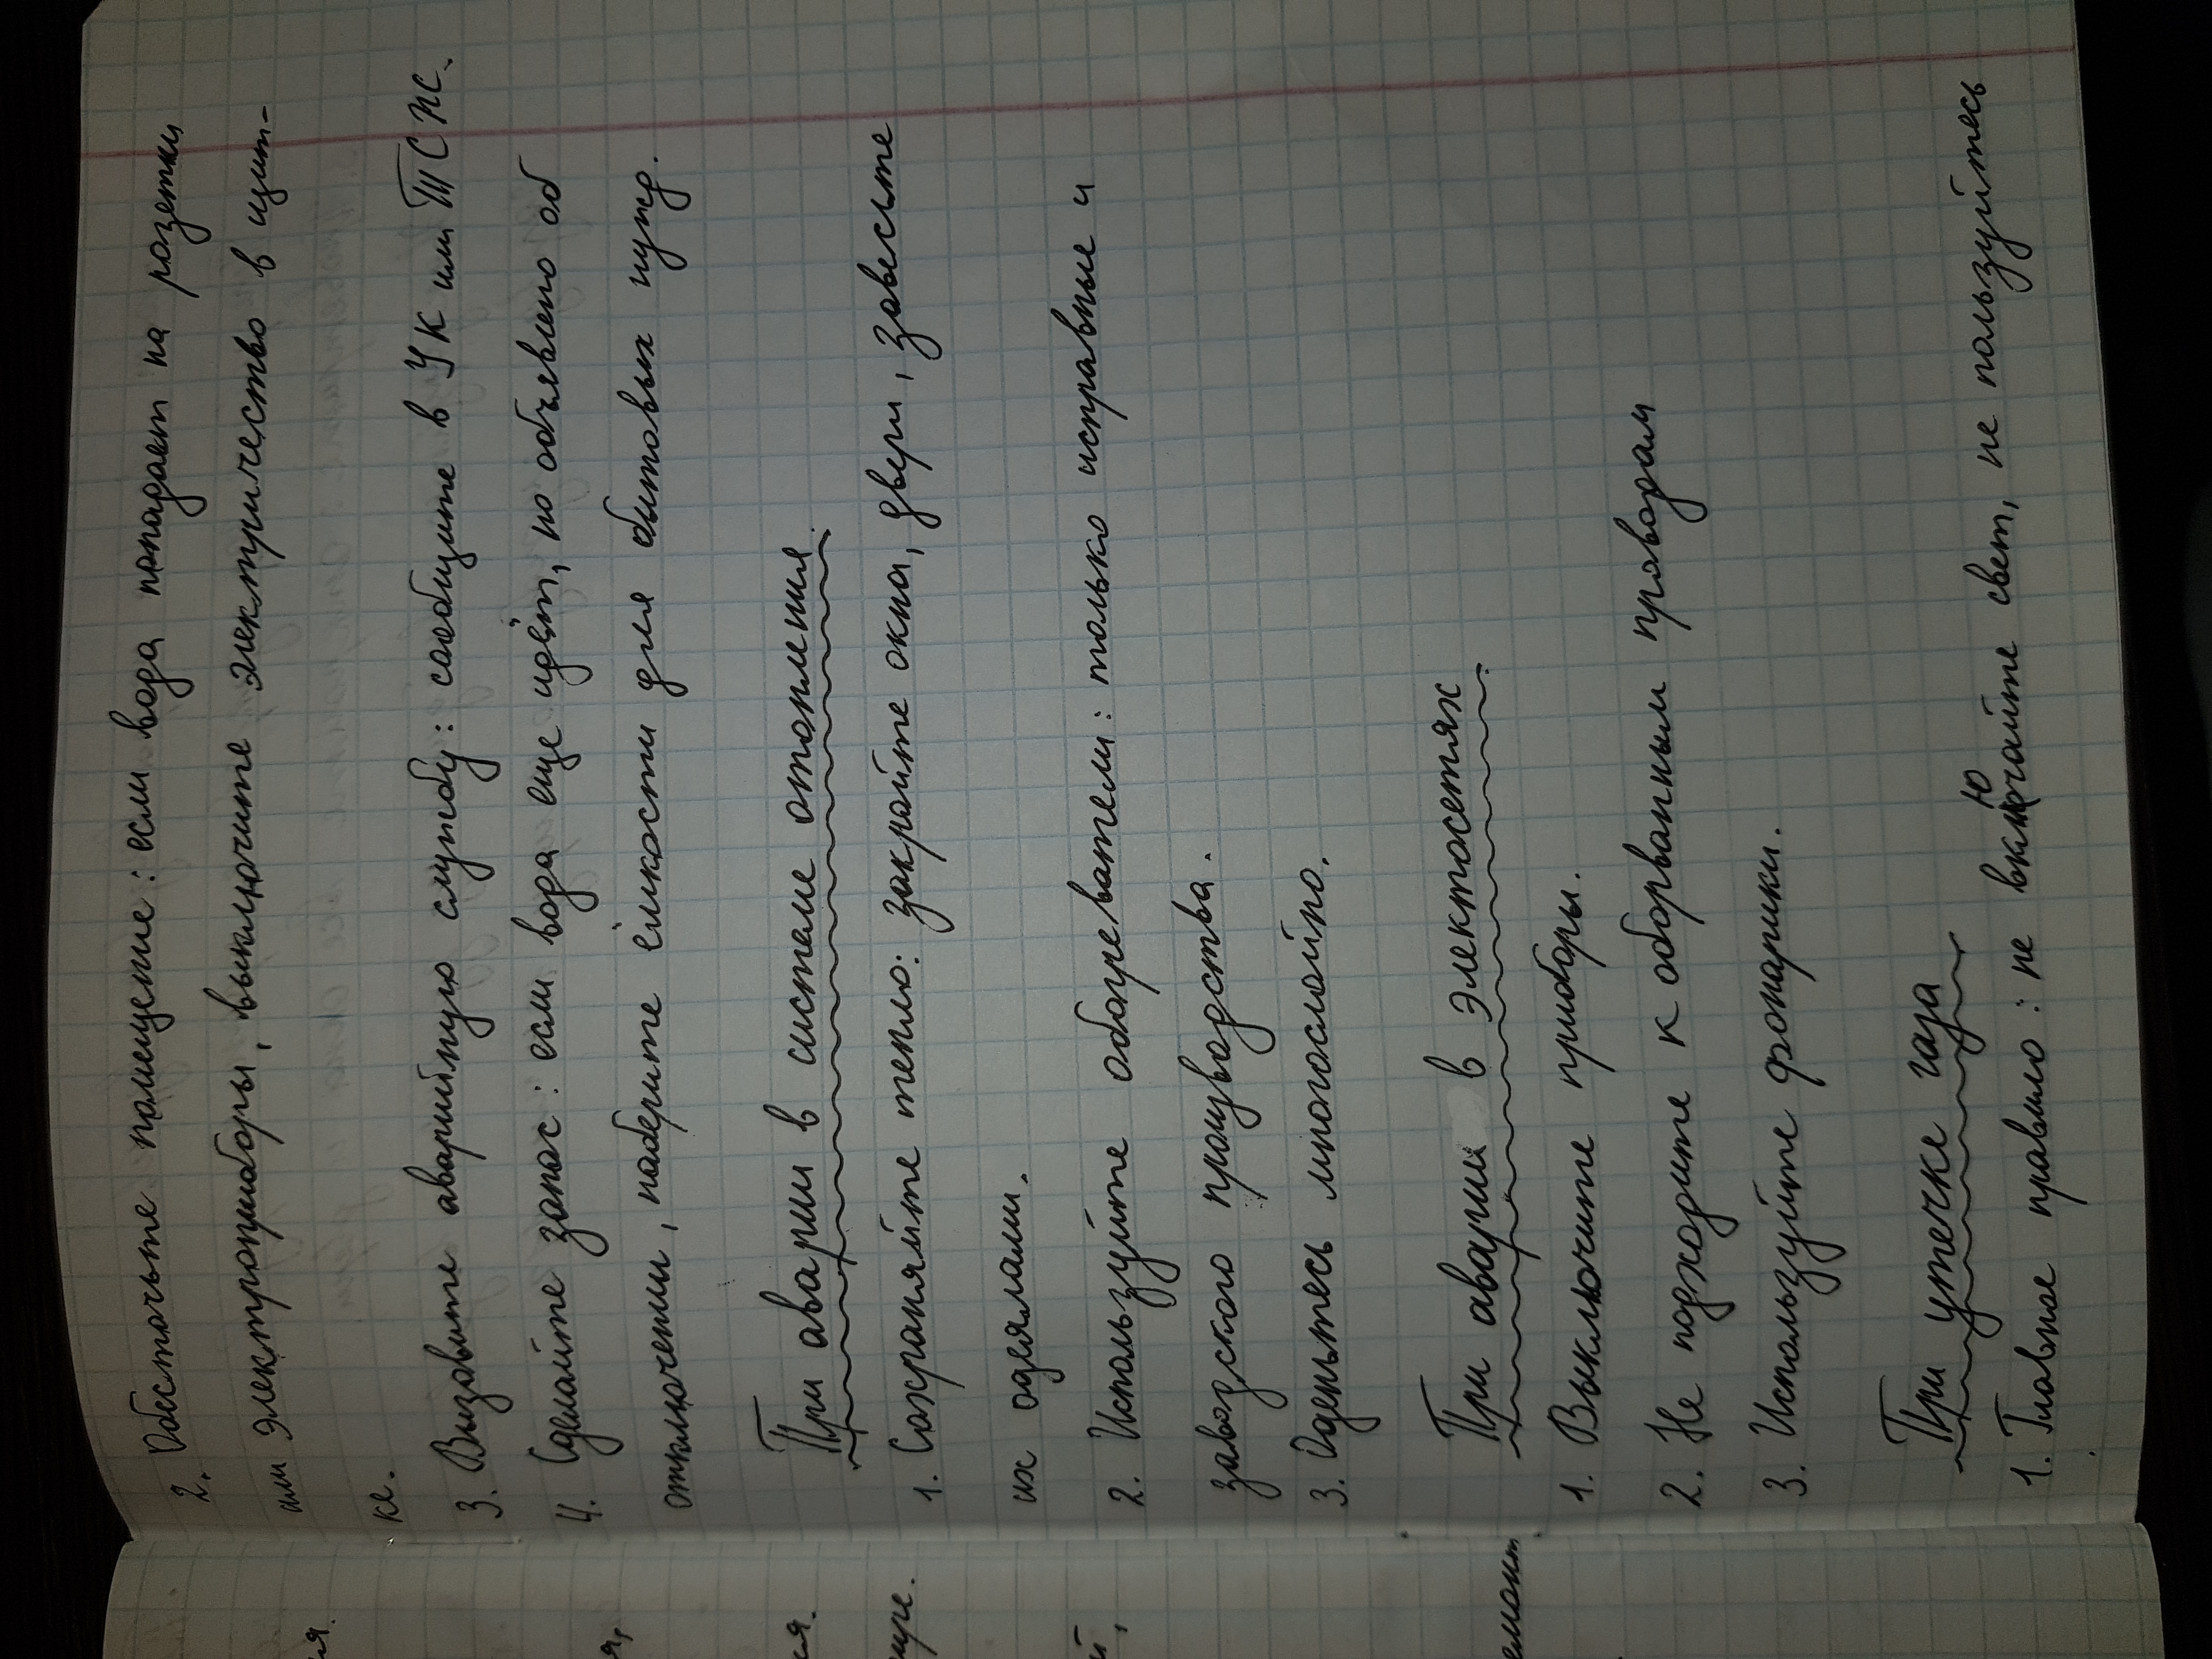 2. Обесточьте помещение: если вода попадает на розетки
или электроприборы, выключите электричество в щит-
ке.
3. Вызовите аварийную службу: сообщите в УК или ТСЖ.
4. Сделайте запас: если вода еще идёт, но объявлено об
отключении, наберите ёмкости для бытовых нужд.
При аварии в системе отопления
1. Сохраняйте тепло: закройте окна, двери, завесьте
их одеялами.
2. Используйте обогреватели: только исправные и
заводского производства.
3. Оденьтесь многослойно.
При аварии в электосетях
1. Выключите приборы.
2. Не подходите к оборванным проводам
3. Используйте фонарики.
При утечке газа
1. Главное правило: не включайте свет, не пользуйтесь